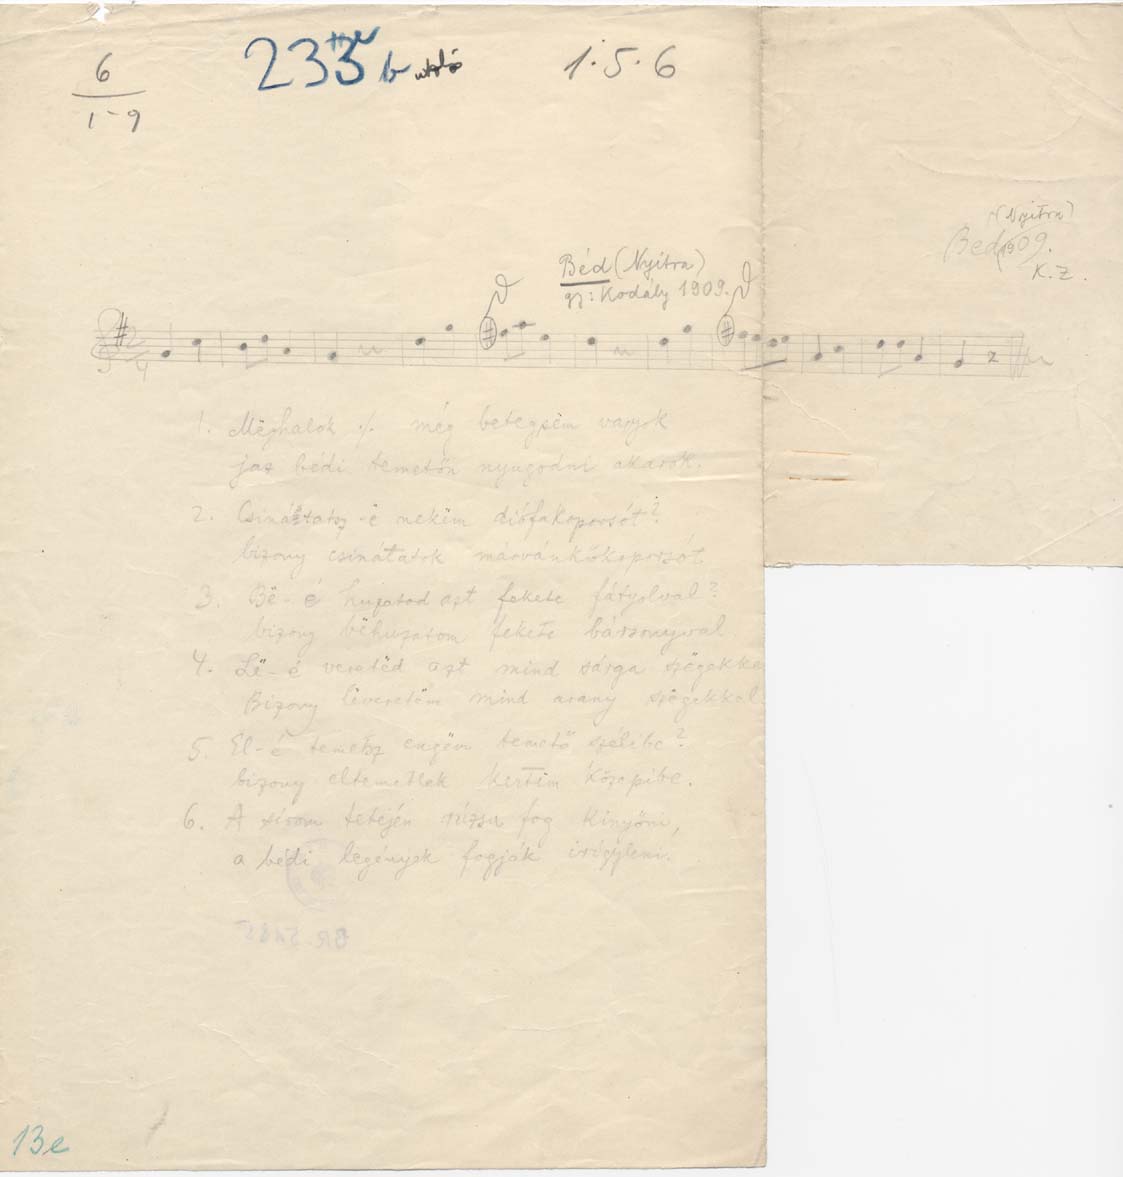 6
1-9
233 b utolsó
1.5.6
(Nyitra)
Béd 1909.
K.Z.
Béd (Nyitra)
gy: Kodály 1909.
2
4
1. Mëghalok ./. még betegsëm vagyok
jaz bédi temetőn nyugodni akarok.
2. Csináltatsz-ë nekëm diófakoporsót?
bizony csinátatok márvánkőkoporsót
3. Bë-é huzatod azt fekete fátyolval?
bizony bëhuzatom fekete bársonyval
4. Lë-é veretëd azt mind sárga szögekke
Bizony lëveretëm mind arany szögekkel
5. El-é temetsz engëm temető szélibe?
bizony eltemetlek kertëm közepibe.
6. A sirom tetején rúzsa fog kinyőni,
a bédi legények fogják irigyleni.
BR 5482
13e